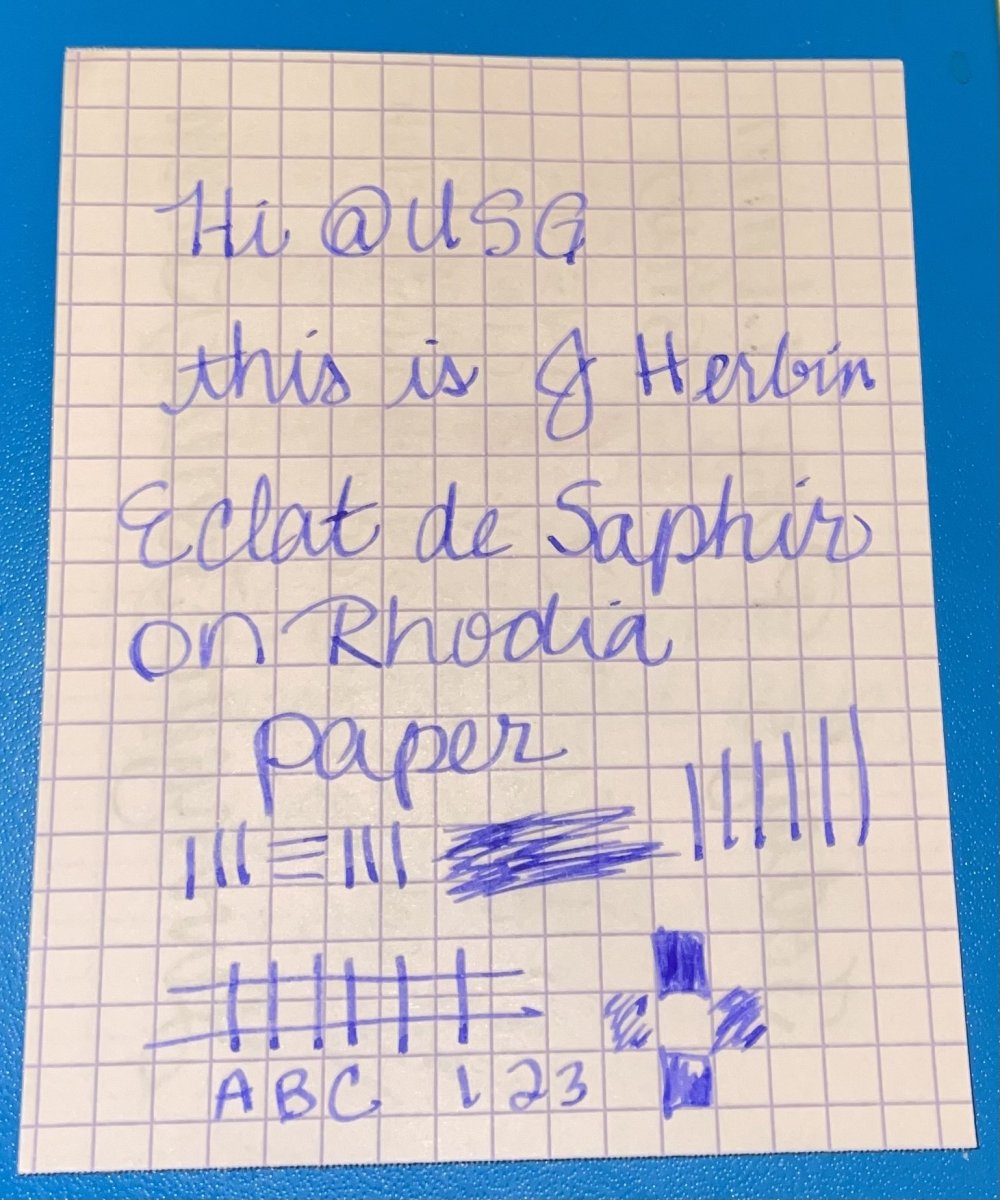 Hi @USG
this is J Herbin
Eclat de Saphir
on Rhodia
paper
A B C 1 2 3